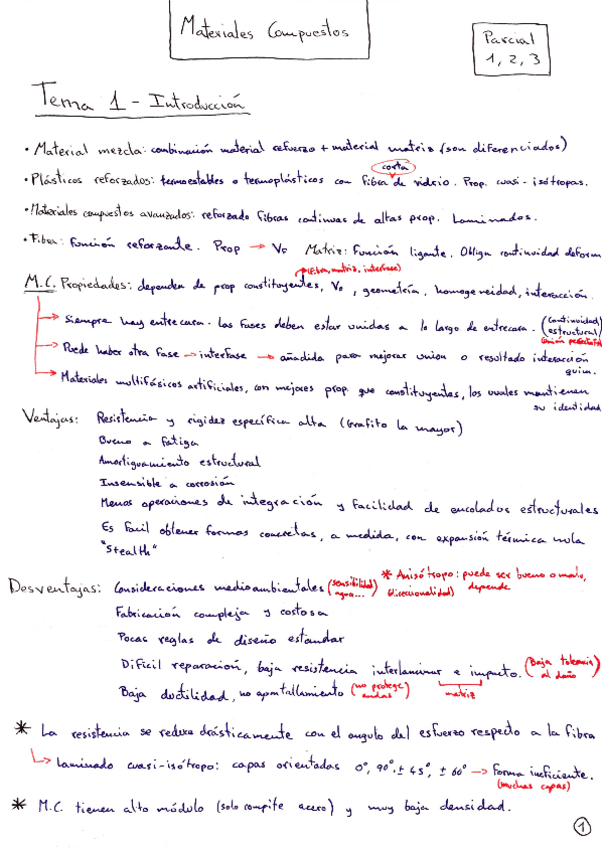 Materiales Compuestos
Parcial
1, 2, 3
Tema 1 - Introducción
• Material mezcla: combinación material refuerzo + material matriz (son diferenciados)
corta
• Plásticos reforzados: termoestables o termoplásticos con fibra de vidrio. Prop. cuasi-isótropas.
• Materiales compuestos avanzados: reforzado fibras continuas de altas prop. Laminados.
• Fibra: Función reforzante. Prop → Vf Matriz: Función ligante. Obliga continuidad deform
(fibra, matriz, interfase)
M.C. Propiedades: dependen de prop constituyentes, Vf, geometría, homogeneidad, interacción.
→ Siempre hay entrecara. Las fases deben estar unidas a lo largo de entrecara. (continuidad
estructural)
(unión perfecta)
→ Puede haber otra fase → interfase → añadida para mejorar union o resultado interacción
quim.
→ Materiales multifásicos artificiales, con mejores prop que constituyentes, los cuales mantienen
su identidad
Ventajas: Resistencia y rigidez específica alta (Grafito la mayor)
Bueno a fatiga
Amortiguamiento estructural
Insensible a corrosión
Menos operaciones de integración y facilidad de encolados estructurales
Es facil obtener formas concretas, a medida, con expansión térmica nula
"Stealth"
Desventajas: Consideraciones medioambientales (sensibilidad
agua...)
* Anisótropo: puede ser bueno o malo,
(direccionalidad) depende
Fabricación compleja y costosa
Pocas reglas de diseño estandar
Dificil reparación, baja resistencia interlaminar e impacto. (Baja tolerancia
al daño)
matriz
Baja ductilidad, no apantallamiento (no protege
ondas)
* La resistencia se reduce drásticamente con el angulo del esfuerzo respecto a la fibra
→ Laminado cuasi-isótropo: capas orientadas 0°, 90°, ± 45°, ± 60° → Forma ineficiente.
(muchas capas)
* M.C. tienen alto módulo (solo compite acero) y muy baja densidad.
1